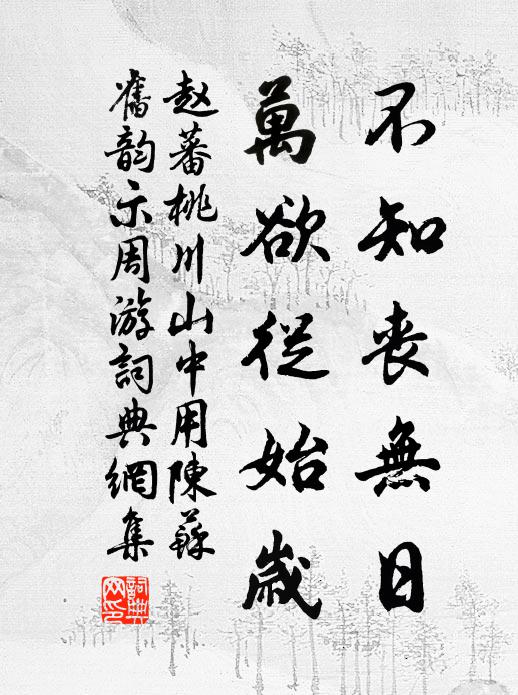 不知丧無日
萬欲從始歲
赵蕃桃川山中用陳蘇
舊韵示周游詞典網集
詞典
网印